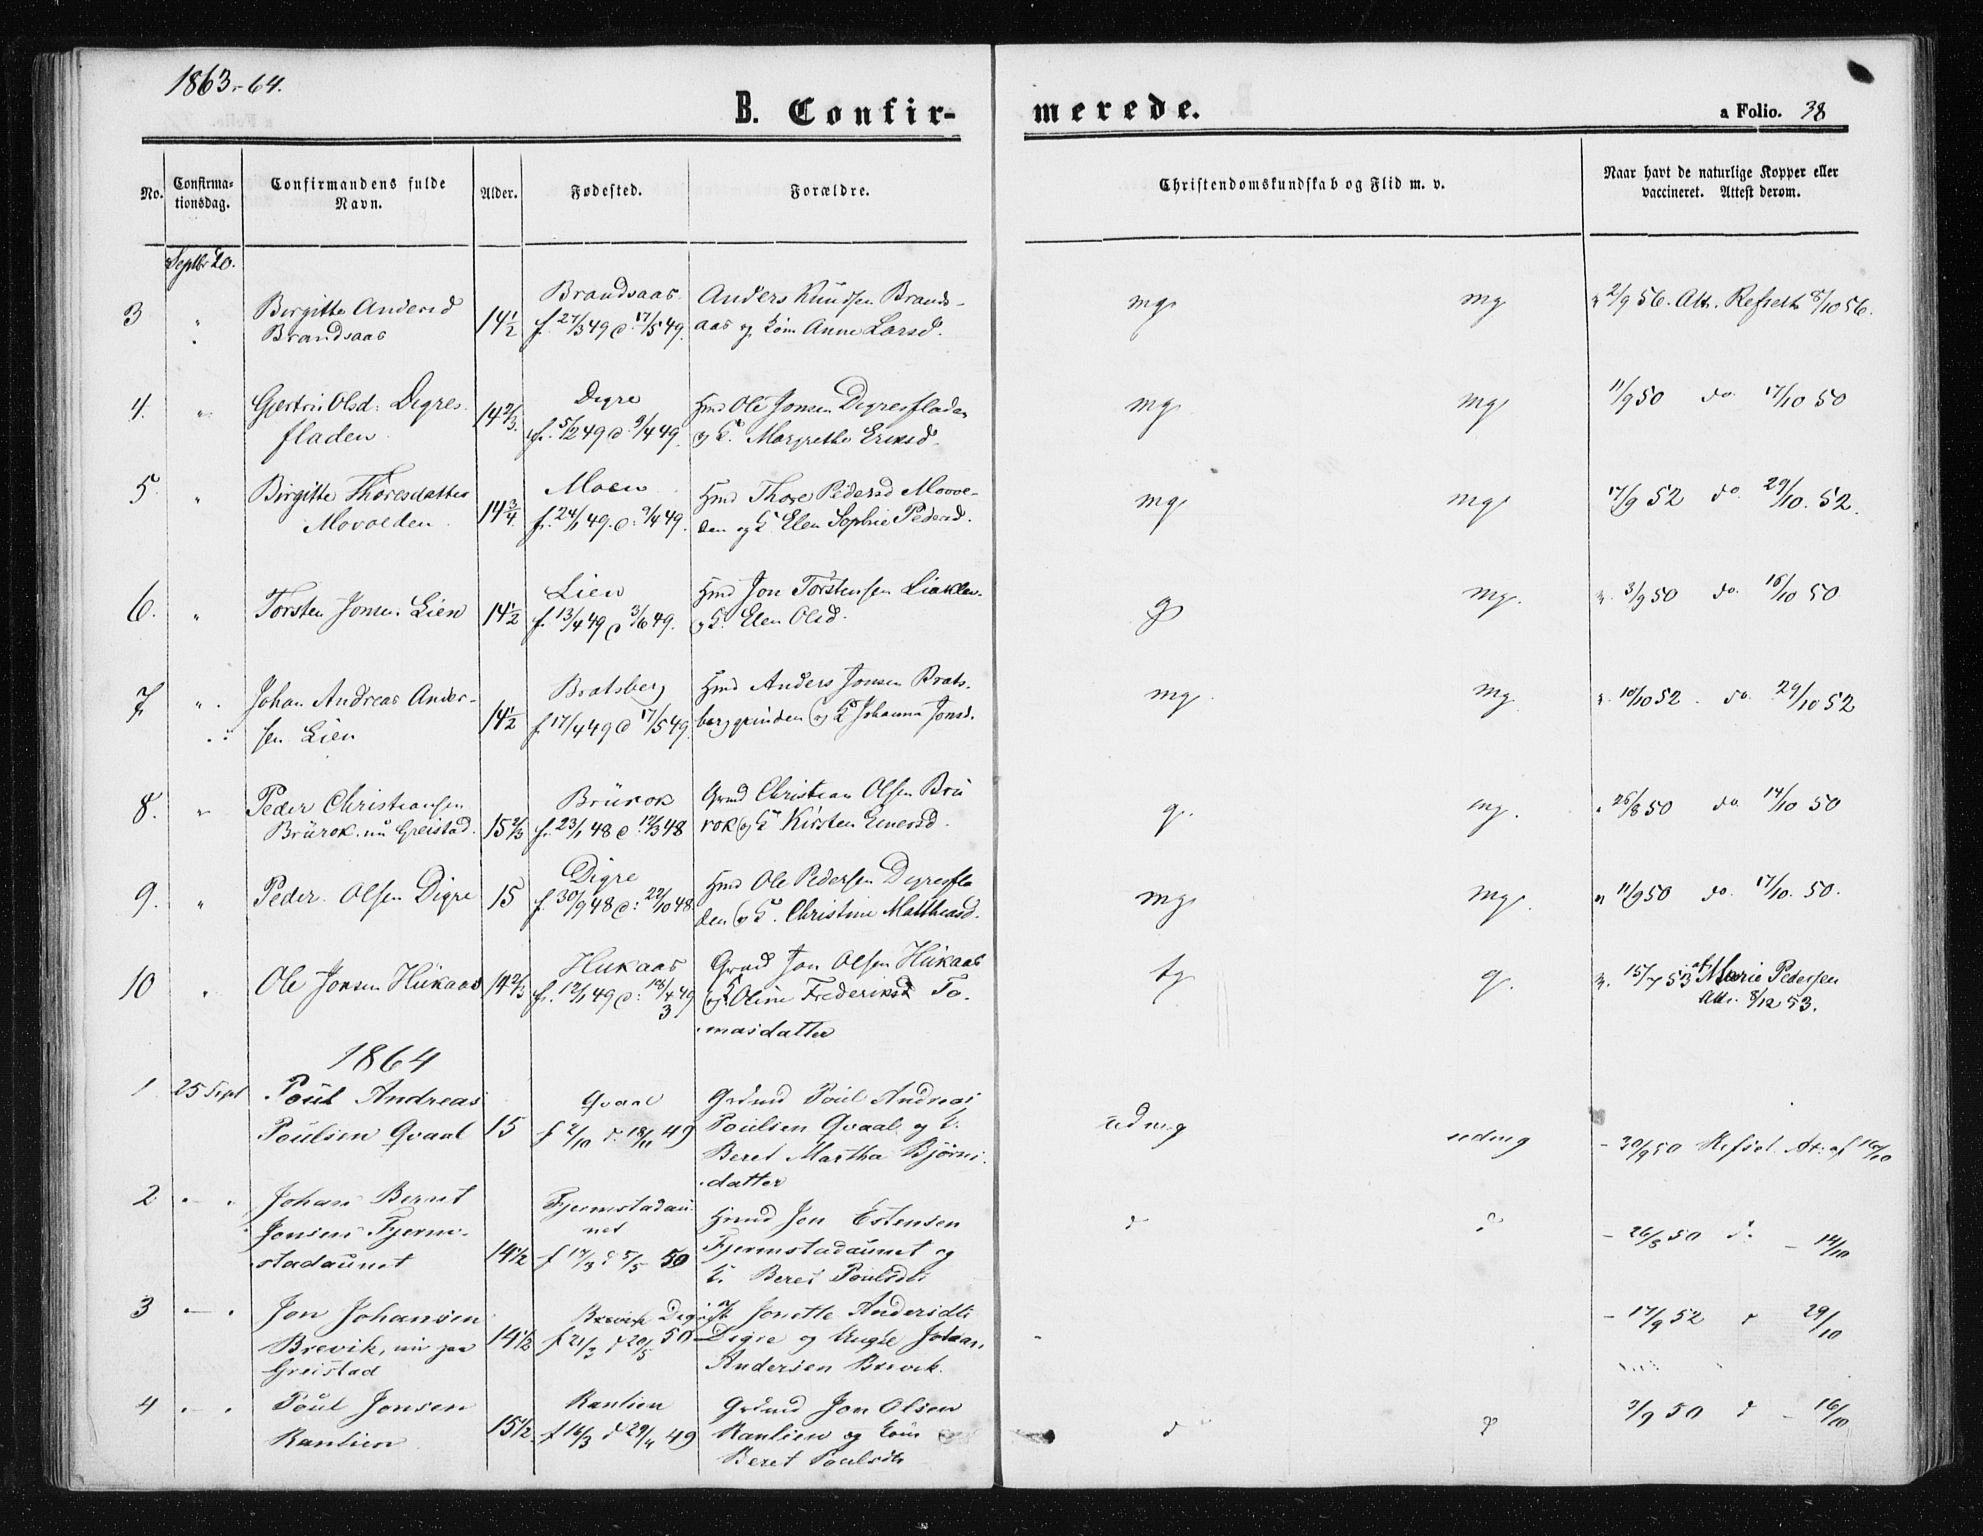 1863-64.
B. Confir-
merede.
a Folio. 38
No.
Confirma-
tionsdag.
Confirmandens fulde
Navn.
Alder.
Fødested.
Forældre.
Christendomskundskab og Flid m. v.
Naar havt de naturlige Kopper eller
vaccineret. Attest derom.
Septbr 20.
3 " Birgitte Andersd
Brandsaas
14 1/2
Brandsaas
f. 27/3 49 d. 17/5 49.
Anders Knudsen Brands-
aas og Kone Anne Larsd.
mg mg
v 2/9 56. Att. Refseth 8/10 56.
4. " Gjertru Olsd. Digres-
fladen
14 2/3.
Digre
f. 5/2 49 d. 9/4 49.
Hmd Ole Jonsen Digresfladen
og K. Margrethe Eriksd.
mg mg
11/9 50 do. 17/10 50
5. " Birgitte Thoresdatter
Movolden
14 3/4.
Moen
f. 24/1 49. d. 9/4 49.
Hmd Thore Pedersd Movol-
den og K. Elen Sophie Pedersd.
mg mg
17/9 52 do. 29/10. 52.
6. " Torsten Jonsen Lien
14 1/2
Lien
f. 13/4 49 d 3/6 49.
Hmd Jon Torstensen
og K. Elen Olsd.
g mg.
v. 3/9 50 do. 16/10 50
7. " Johan Andreas Ander-
sen Lien
14 1/2
Bratsberg
f. 17/4 49 d 17/5 49.
Hmd Anders Jonsen Brats-
berggrinden og K. Johanna Jonsd.
mg. mg
v. 10/10 52. do. 29/10 52
8. " Peder Christiansen
Brürok. nu Greistad.
15 2/3
Brürok
f. 23/1 48 d. 12/3 48
Grmd Christian Olsen Brü
rok og K. Kirsten Einersd.
g. mg.
v 26/8 50 do 14/10 50
9. " Peder. Olsen Digre
15
Digre
f. 30/9 48 d. 22/10 48
Hmd Ole Pedersen Digresfla
den og K. Christine Matthiasd.
mg mg.
v 11/9 50 do. 17/10. 50.
10 " Ole Jonsen Hükaas
14 2/3
Hükaas
f. 12/1 49 d.
Grmd Jon Olsen Hükaas
og K. Oline Frederiksd To-
masdatter
tg g.
v. 15/7 53 af Marie Pedersen
Att. 8/12 53.
1864
1 25 Sept Poül Andreas
Poülsen Qvaal
15
Qvaal
f 2/10 d. 18/11 49
Grdmd Poül Andreas
Poülsen Qvaal og K.
Beret Martha Bjørns-
datter
udmg udmg
- 30/9 50 Refset. At. af 16/10
2 " " Johan Bernt
Jonsen Fjerm-
stadaünet
14 1/2
Fjermstadaü-
net
f 17/3 d 5/5 50
Hmd Jon Estensen
Fjermstadaünet og
K. Beret Poülsdt.
d d
- 26/8 50 d. - 14/10
3 " " Jon Johansen
Brevik, nu paa
Greistad
14 1/2
Digre
f 21/3 d 20/5 50
Jonette Andersdt.
Digre og Ungk. Johan
Andersen Brevik.
- 17/9 52 d 29/10
4 " " Poül Jonsen
Ranlien
15 1/2
Ranlien
f 16/3 d 29/4 49
Grdmd Jon Olsen
Ranlien og Kone
Beret Poülsdt
d d
3/9 50 d - 16/10